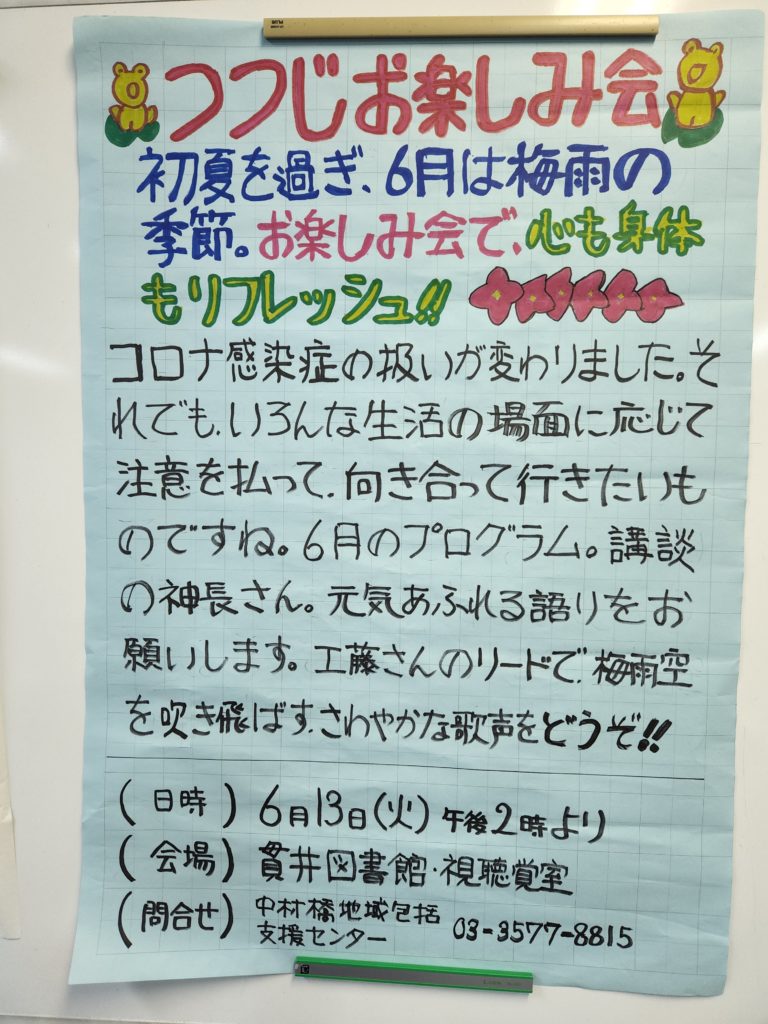 つつじお楽しみ会
初夏を過ぎ、6月は梅雨の
季節。お楽しみ会で、心も身体
もリフレッシュ!!
コロナ感染症の扱いが変わりました。そ
れでも、いろんな生活の場面に応じて
注意を払って、向き合って行きたいも
のですね。6月のプログラム。講談
の神長さん。元気あふれる語りをお
願いします。工藤さんのリードで、梅雨空
を吹き飛ばす、さわやかな歌声をどうぞ!!
(日時) 6月13日(火) 午後2時より
(会場) 貫井図書館・視聴覚室
(問合せ) 中村橋地域包括
支援センター 03-3577-8815